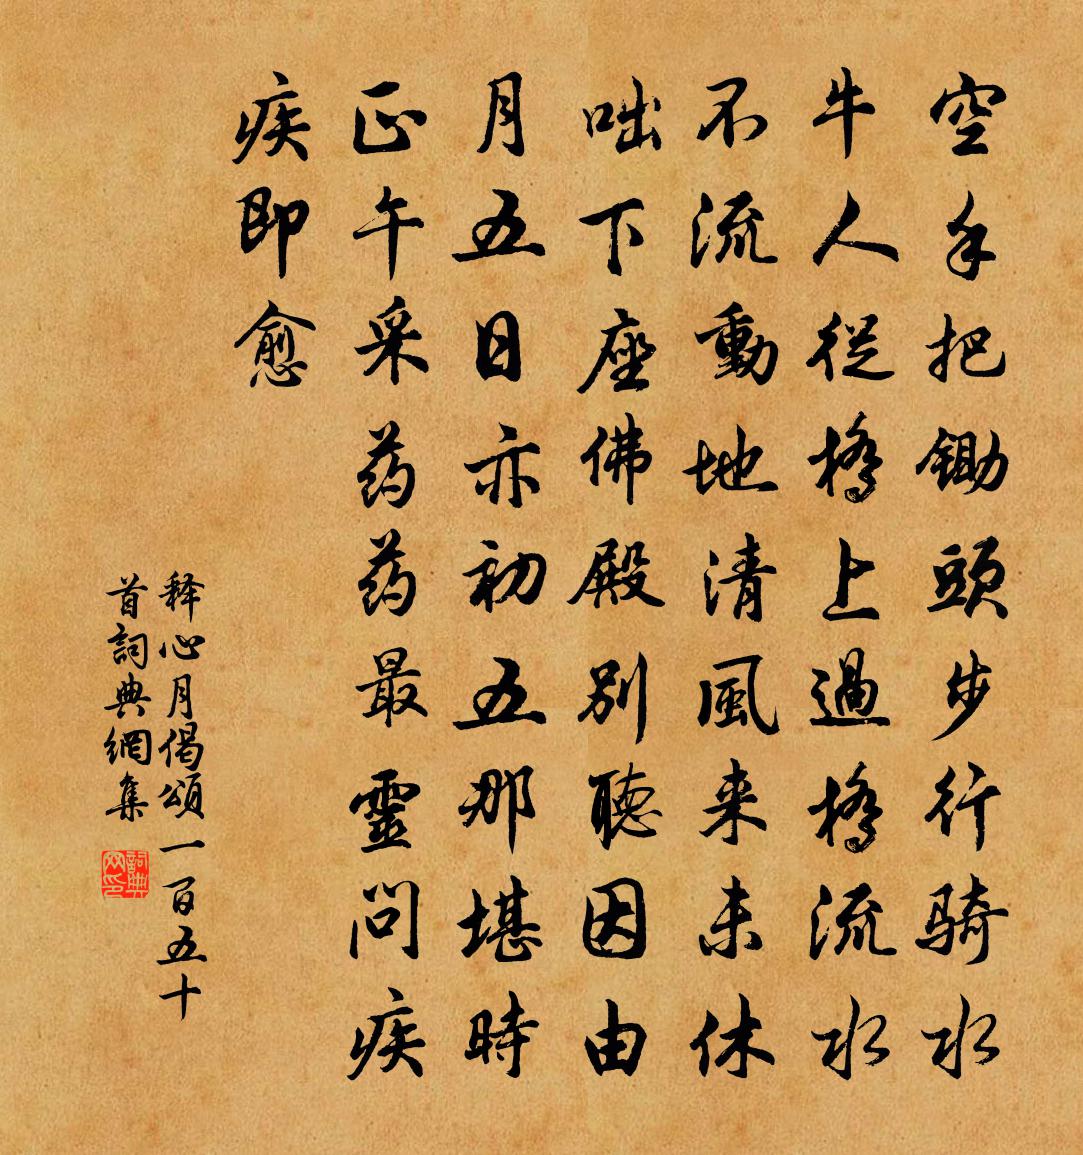 空手把鋤頭步行騎水
牛人從橋上過橋流水
不流動地清風来未休
咄下座佛殿别聽因由
月五日亦初五那堪時
正午采药药最靈问疾
疾即愈
释心月偈頌一百五十
首詞典網集
詞典网印